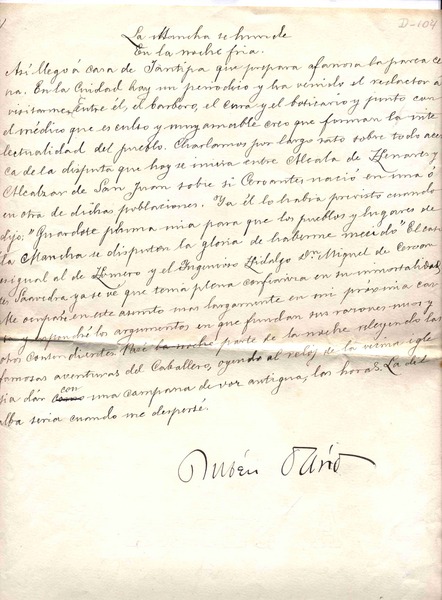 D-104
La Mancha se hunde
En la noche fria.
Asi llego á casa de Jantipa que prepara afanosa la parca ce
na. En la ciudad hay un periodico y ha venido el redactor a
visitarme. Entre él, el barbero, el cura y el boticario y junto con
el médico que es culto y muy amable creo que forman la inte
lectualidad del pueblo. Charlamos por largo rato sobre todo acer
ca de la disputa que hoy se inicia entre Alcala de Henares y
Alcalzar de San Juan sobre si Cervantes nació en una ó
en otra de dichas poblaciones. Ya él lo habia previsto cuando
dijo: "Guardese pluma mia para que los pueblos y lugares de
la Mancha se disputen la gloria de haberme mecido" El caso
es igual al de Homero y el Ingenioso Hidalgo Dn Miguel de Cervan
tes Saavedra ya se ve que tenia plena confianza en su inmortalidad
Me ocuparé en este asunto mas largamente en mi próxima car
ta y expondré los argumentos en que fundan sus razones unos y
otros contendientes. Pasé la noche parte de la noche releyendo las
famosas aventuras del Caballero, oyendo al reloj de la vecina igle
sia dar con una campana de voz antigua, las horas. La del
alba seria cuando me desperté.
Rubén Darío